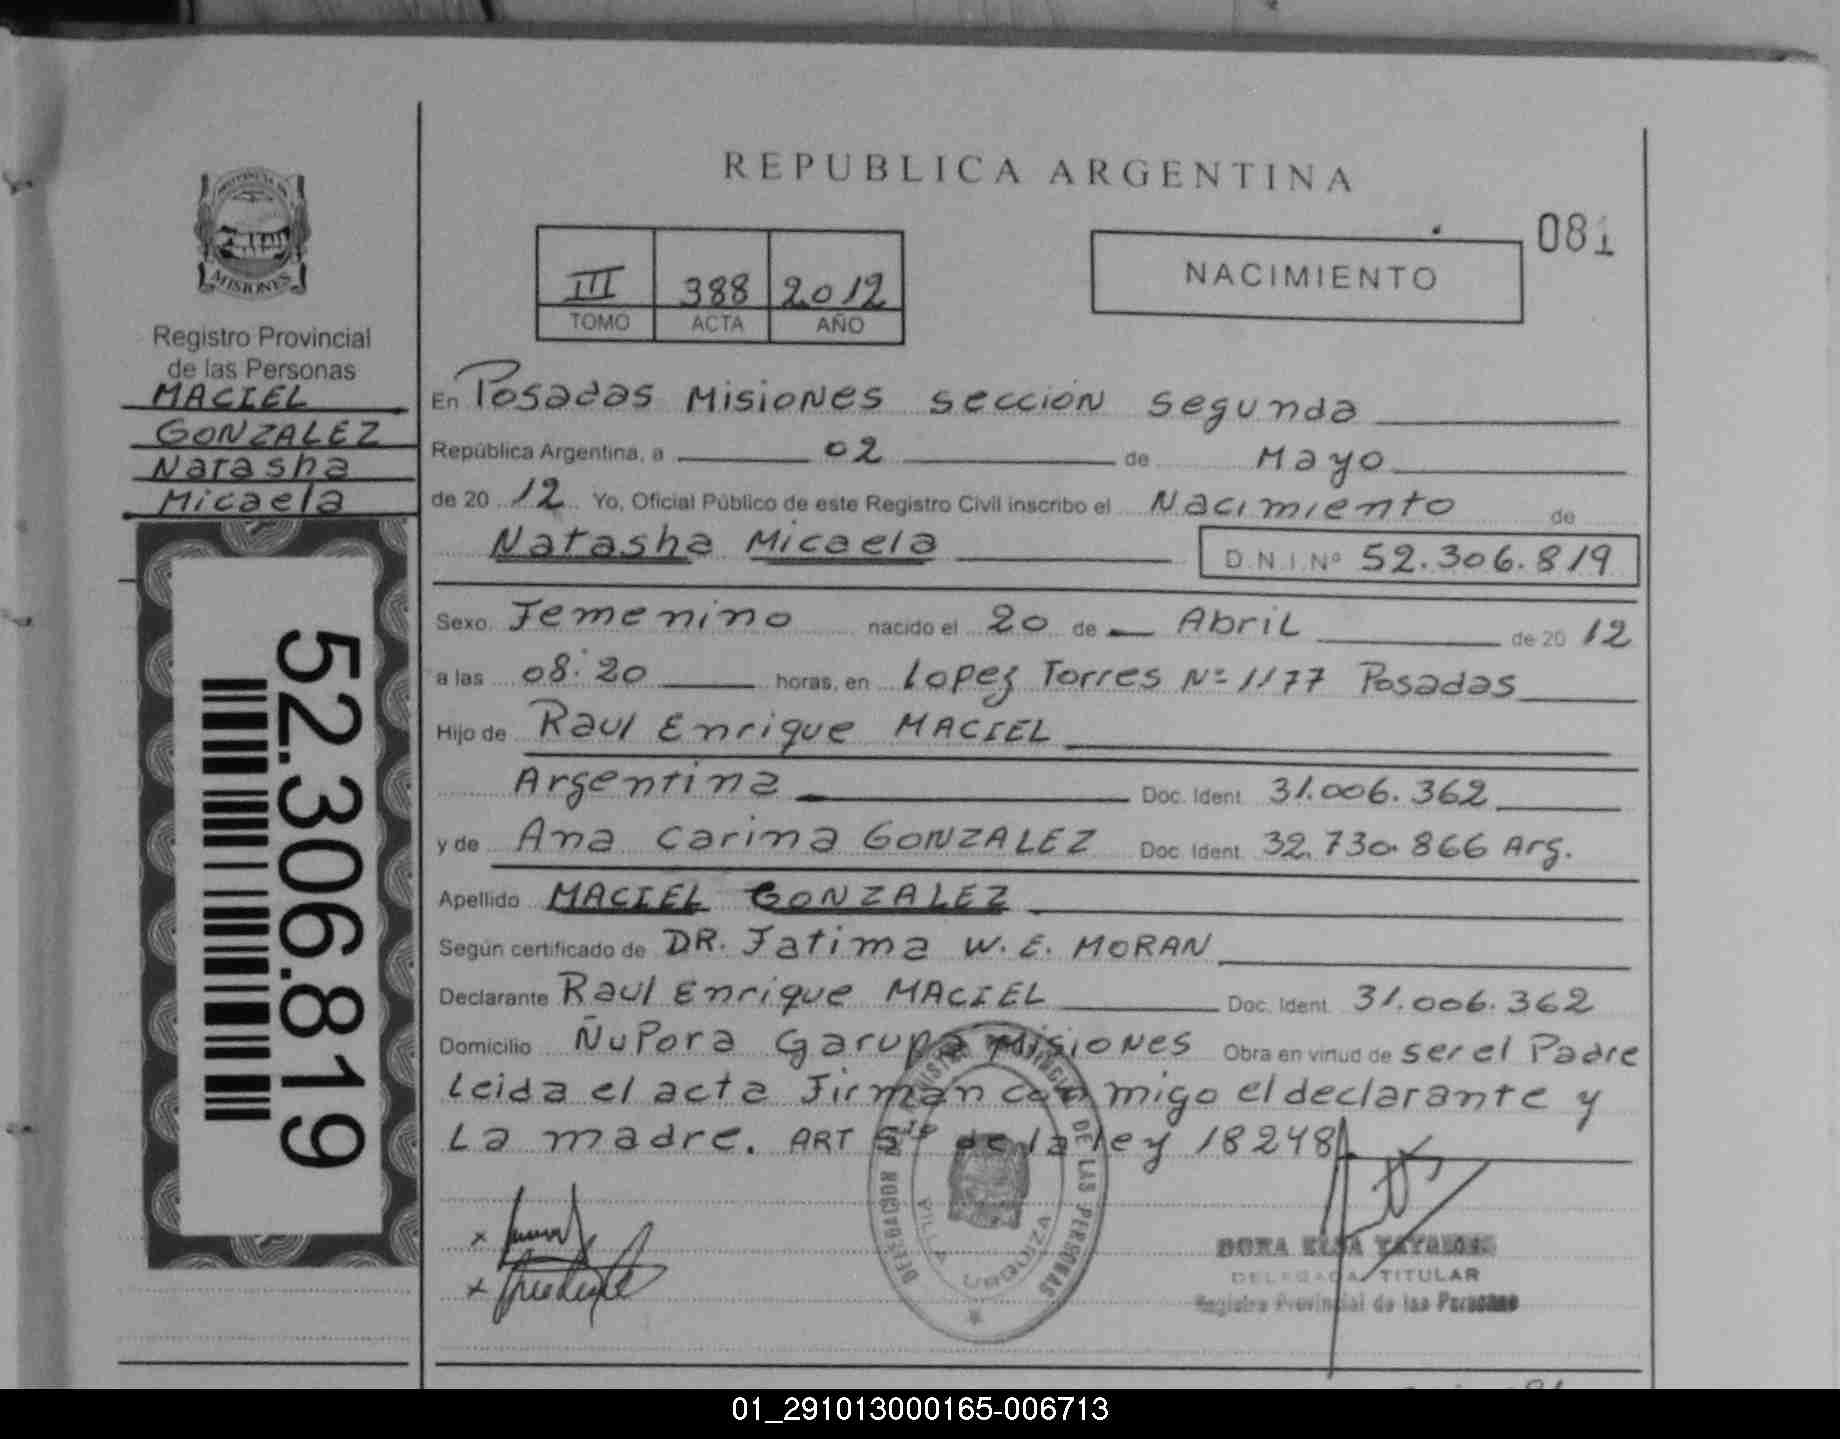 REPUBLICA ARGENTINA
081
NACIMIENTO
III 388 2012
TOMO ACTA AÑO
MISIONES
Registro Provincial
de las Personas
MACIEL
GONZALEZ
Natasha
Micaela
52.306.819
En Posadas Misiones sección segunda
República Argentina, a 02 de Mayo
de 20 12 Yo, Oficial Público de este Registro Civil inscribo el Nacimiento de
Natasha Micaela D.N.I. Nº 52.306.819
Sexo Femenino nacido el 20 de Abril de 20 12
a las 08:20 horas, en Lopez Torres Nº 1177 Posadas
Hijo de Raul Enrique MACIEL
Argentina Doc. Ident. 31.006.362
y de Ana Carina GONZALEZ Doc. Ident. 32.730.866 Arg.
Apellido MACIEL GONZALEZ
Según certificado de DR. Fatima W. E. MORAN
Declarante Raul Enrique MACIEL Doc. Ident. 31.006.362
Domicilio ÑuPora Garupa Misiones Obra en virtud de ser el Padre
Leida el acta Firman con migo el declarante y
La madre. ART 5to de la ley 18248
DE LAS PERSONAS
VILLA URQUIZA
DELEGADA TITULAR
Registro Provincial de las Personas
01_291013000165-006713